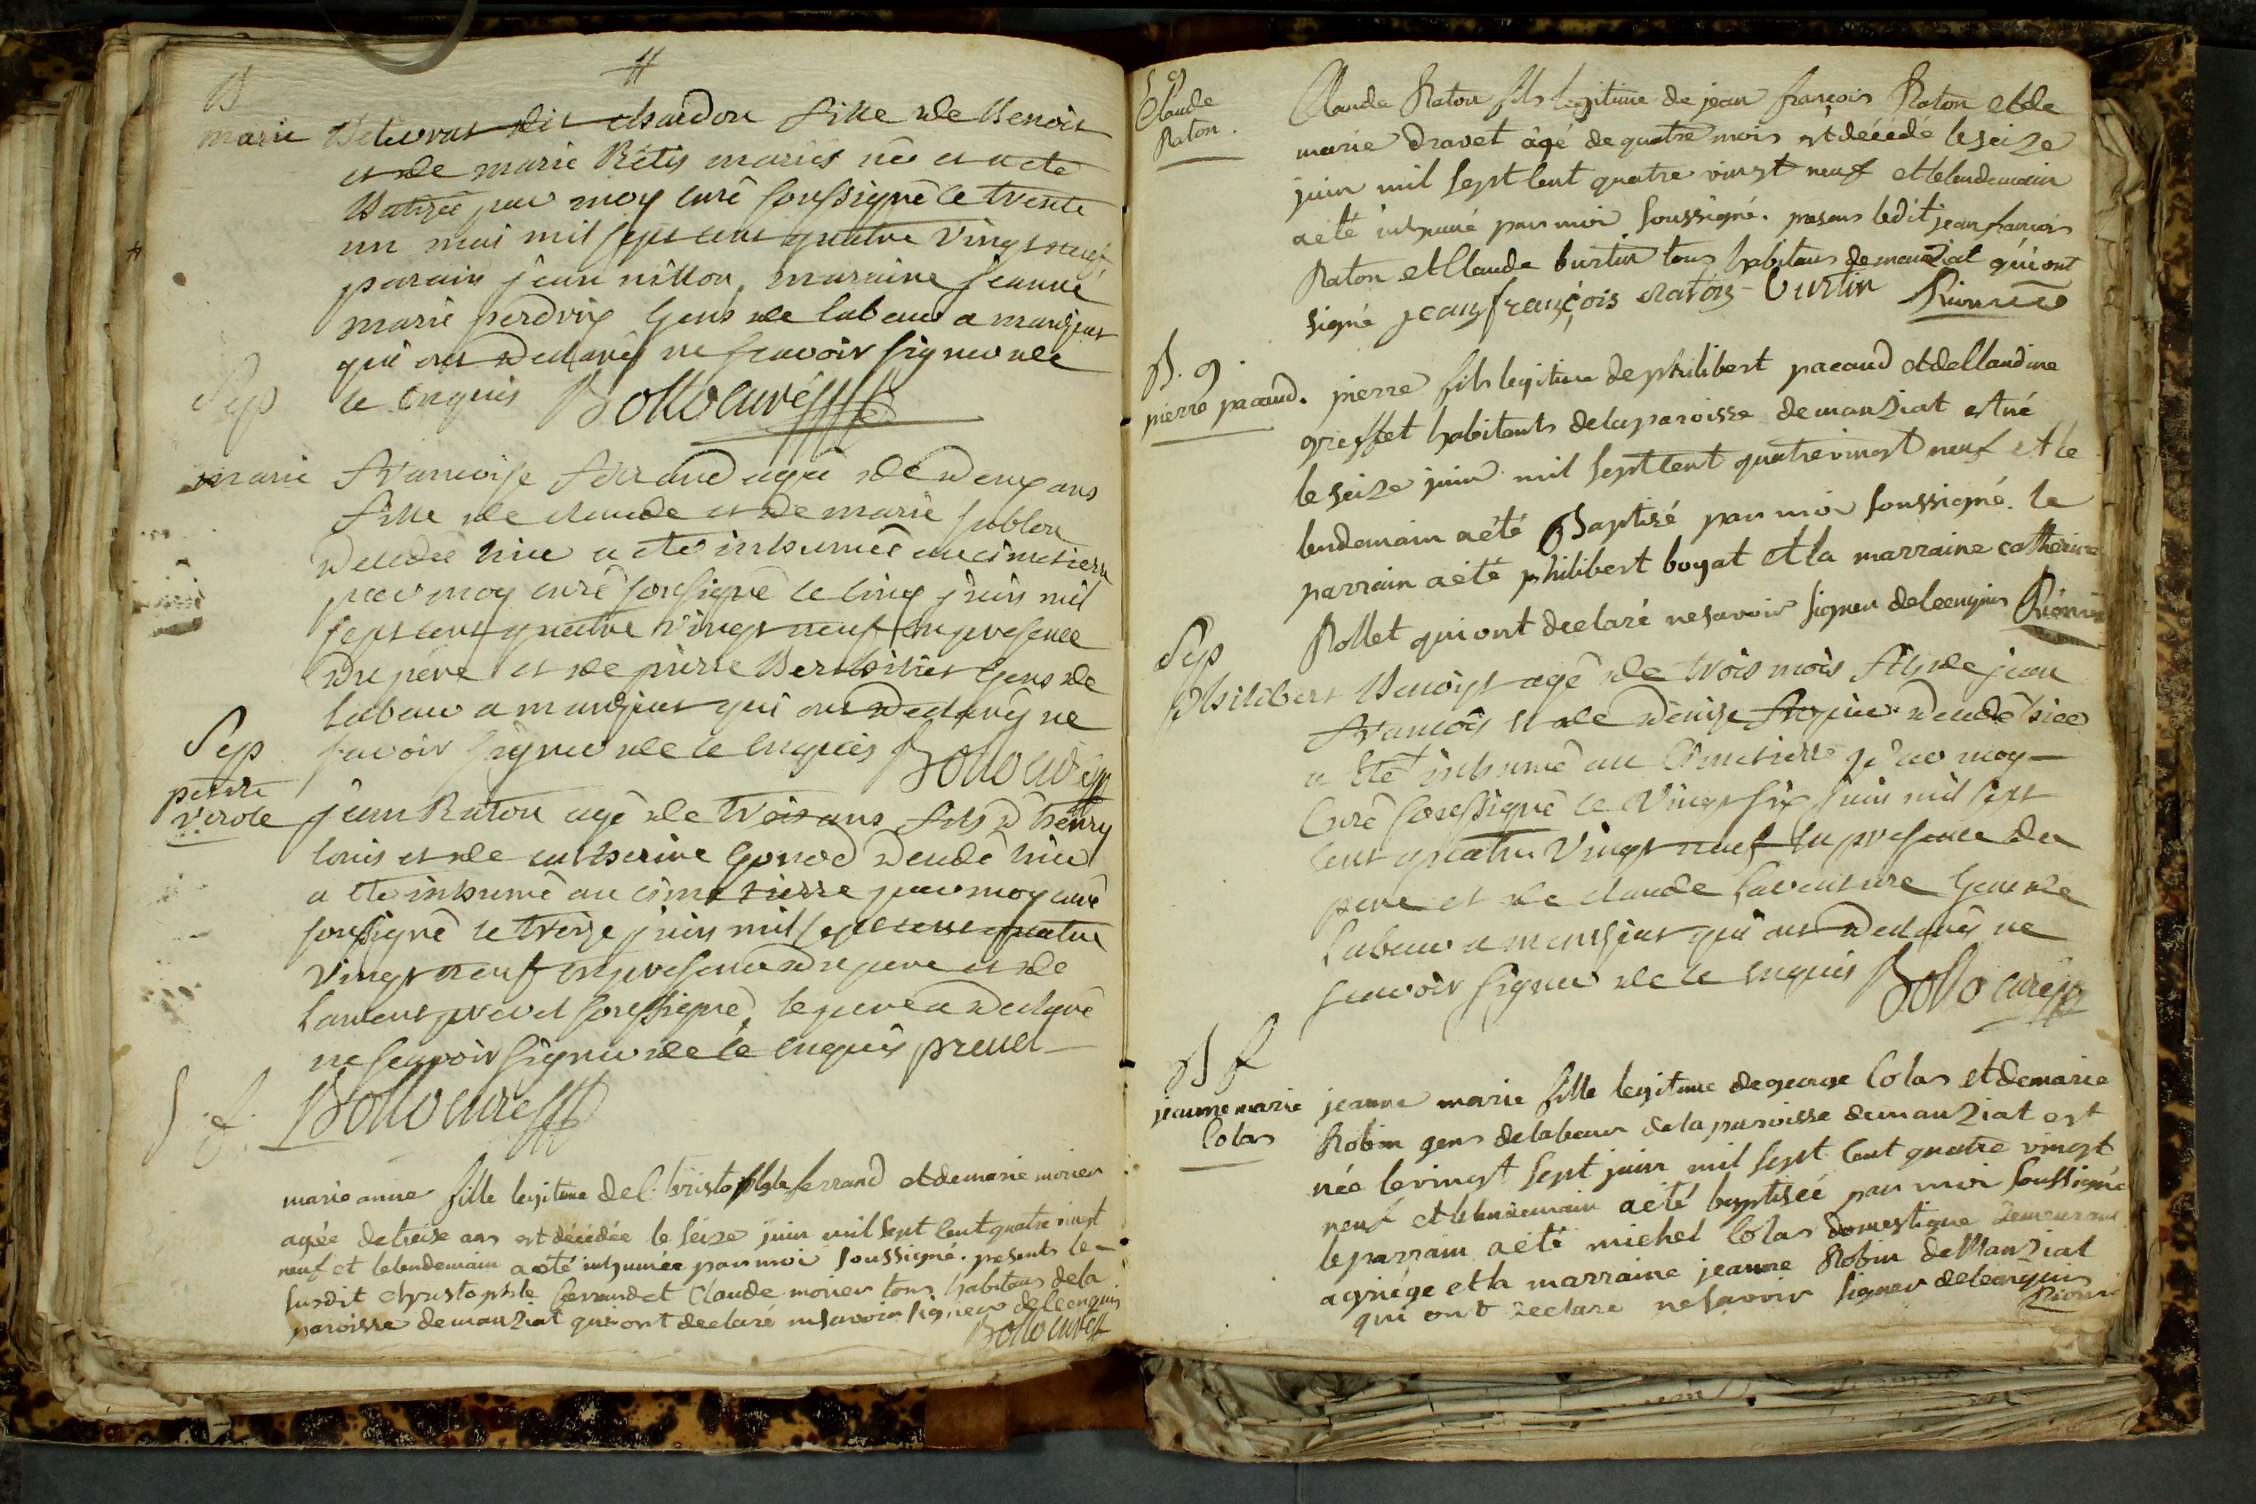 B
marie dit chardon fille de Benoit
et de marie Rétis mariés née et a été
Batizée par moy curé soussigné le trente
un mai mil sept cent quatre vingt neuf
parain jean nillon, maraine jeanne
marie perdrix gens de labeur a manziat
qui ont declarés ne scavoir signer de
ce enquis Bollo curé
Sep
marie francoise ferrand agée de deux ans
fille de claude et de marie sublon
decedée hier a été inhumée au cimetierre
par moy curé soussigné le cinq juin mil
sept cent quatre vingt neuf en presence
du pere et de pierre gens de
labeur a manziat qui ont declarés ne
scavoir signer de ce enquis Bollo curé
Sep
petite
verole
jean Raton agé de trois ans fils d'henry
louis et de catherine gonod decedé hier
a été inhumé au cimetierre par moy curé
soussigné le treize juin mil sept cent quatre
vingt neuf en presence du pere et de
laurent prevel soussigné, le pere a declaré
ne scavoir signer de ce enquis prevel
Bollo curé
S. f.
marie anne fille legitime de Christophle ferrand et de marie morier
agée de treise ans est décédée le seize juin mil sept cent quatre vingt
neuf et le lendemain a été inhumée par moi soussigné. presents le
susdit christophle ferrand et Claude morier tous habitans de la
paroisse de manziat qui ont declaré ne savoir signer de ce enquis
Bollo curé
S g
Claude
Raton.
Claude Raton fils legitime de jean françois Raton et de
marie dravet âgé de quatre mois est décédé le seize
juin mil sept cent quatre vingt neuf et le lendemain
a été inhumé par moi soussigné. présens ledit jean francois
Raton et Claude burtin tous habitans de manziat qui ont
signé jean françois raton Burtin
B. g.
pierre pacaud.
pierre fils legitime de philibert pacaud et de Claudine
greffet habitants de la paroisse de manziat est né
le seize juin mil sept cent quatre vingt neuf et le
lendemain a été Baptisé par moi soussigné. le
parrain a été philibert boyat et la marraine catherine
Rollet qui ont declaré ne savoir signer de ce enquis
Sep
philibert Benoist agé de trois mois fils de jean
francois et de denise decedé hier
a été inhumé au Cimetierre par moy
Curé soussigné le vingt six juin mil sept
cent quatre vingt neuf en presence du
pere et de claude laventure gens de
labeur a manziat qui ont declarés ne
scavoir signer de ce enquis Bollo curé
B f
jeanne marie
Colas
jeanne marie fille legitime de george Colas et de marie
Robin gens de labeur de la paroisse de manziat est
née le vingt sept juin mil sept cent quatre vingt
neuf et le lendemain a été baptisée par moi soussigné
le parrain a été michel Colas domestique demeurant
a griége et la marraine jeanne Robin de Manziat
qui ont declaré ne savoir signer de ce enquis